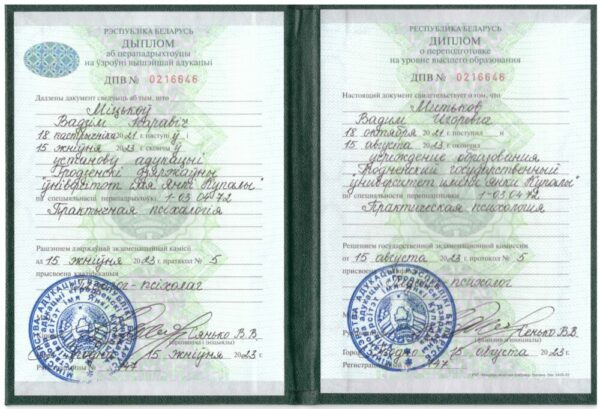 РЭСПУБЛІКА БЕЛАРУСЬ
ДЫПЛОМ
аб перападрыхтоўцы
на ўзроўні вышэйшай адукацыі
ДПВ № 0216646
Дадзены дакумент сведчыць аб тым, што
Міцькоў
Вадзім Ігаравіч
18 кастрычніка 20 21 г. паступіў ў і
15 жніўня 20 23 г. скончыў
установу адукацыі
"Гродзенскі дзяржаўны
ўніверсітэт імя Янкі Купалы"
па спецыяльнасці перападрыхтоўкі 1-03 04 72
Практычная псіхалогія
Рашэннем дзяржаўнай экзаменацыйнай камісіі
ад 15 жніўня 20 23 г. пратакол № 5
прысвоена кваліфікацыя
Педагог-псіхолаг
В.В.
15 жніўня 20 23 г.
147
РЕСПУБЛИКА БЕЛАРУСЬ
ДИПЛОМ
о переподготовке
на уровне высшего образования
ДПВ № 0216646
Настоящий документ свидетельствует о том, что
Митьков
Вадим Игоревич
18 октября 20 21 г. поступил в и
15 августа 20 23 г. окончил
учреждение образования
"Гродненский государственный
университет имени Янки Купалы"
по специальности переподготовки 1-03 04 72
Практическая психология
Решением государственной экзаменационной комиссии
от 15 августа 20 23 г. протокол № 5
присвоена квалификация
психолог
В.В.
Город Гродно 15 августа 20 23 г.
Регистрационный № 147